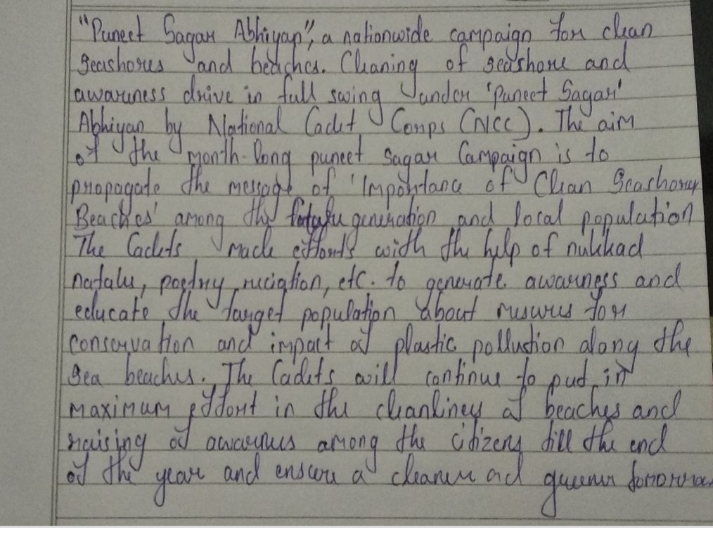 "Puneet Sagar Abhiyan", a nationwide campaign for clean
seashores and beaches. Cleaning of seashore and
awareness drive in full swing under 'Puneet Sagar'
Abhiyan by National Cadet Corps (NCC). The aim
of the month-long puneet Sagar Campaign is to
propagate the message of 'Importance of Clean Seashores
Beaches' among the generation and local population
The Cadets made efforts with the help of nukkad
natake, poetry, etc. to generate awarness and
educate the target population about for
conservation and impact of plastic pollution along the
sea beaches. The Cadets will continue to put in
maximum effort in the cleanliness of beaches and
raising of among the citizens till the end
of the year and ensure a cleaner ad greener tomorrow